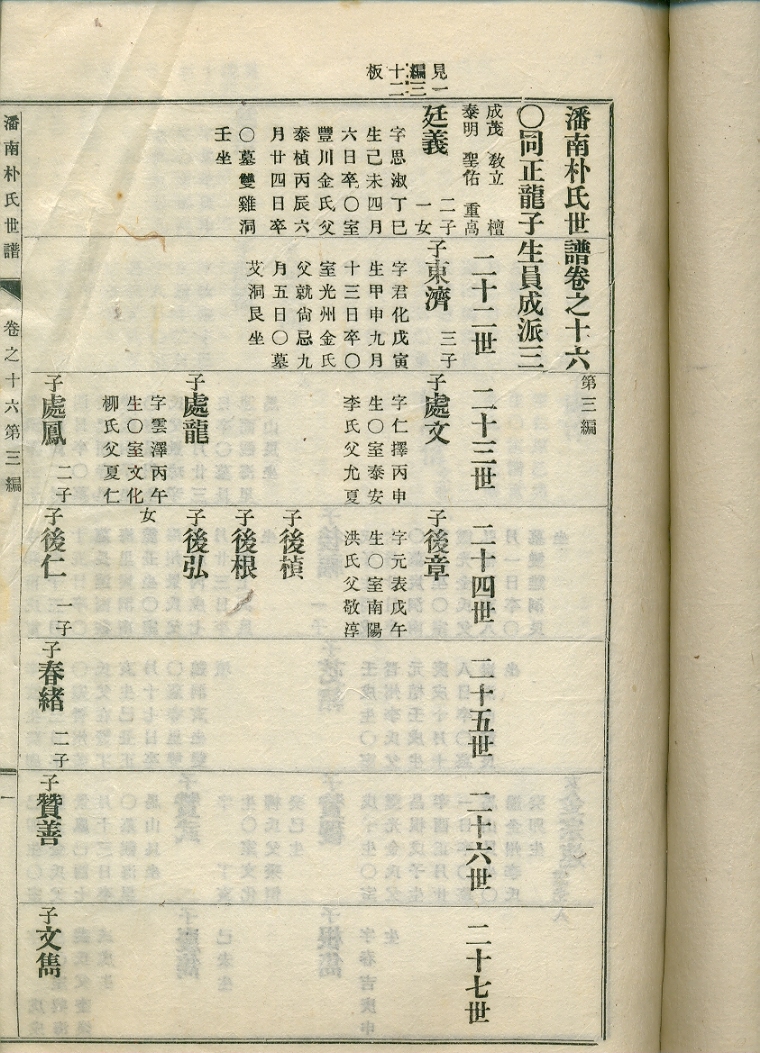 見一
編三
十二
板
潘南朴氏世譜卷之十六 第三編
〇同正龍子生員成派三
成茂 敎立 檀
泰明 聖佑 重高
廷義 二子
一女
字思淑丁巳
生己未四月
六日卒〇室
豐川金氏父
泰楨丙辰六
月廿四日卒
〇墓雙雞洞
壬坐
二十二世
子東濟 三子
字君化戊寅
生甲申九月
十三日卒〇
室光州金氏
父就尙忌九
月五日〇墓
艾洞艮坐
二十三世
子處文
字仁擇丙申
生〇室泰安
李氏父尤夏
子處龍
字雲澤丙午
生〇室文化
柳氏父夏仁
子處鳳 二子
二十四世
子後章
字元表戊午
生〇室南陽
洪氏父敬淳
子後楨
子後根
子後弘
女
子後仁 一子
二十五世
子春緒 二子
二十六世
子贊善
二十七世
子文儁
潘南朴氏世譜 卷之十六第三編 一